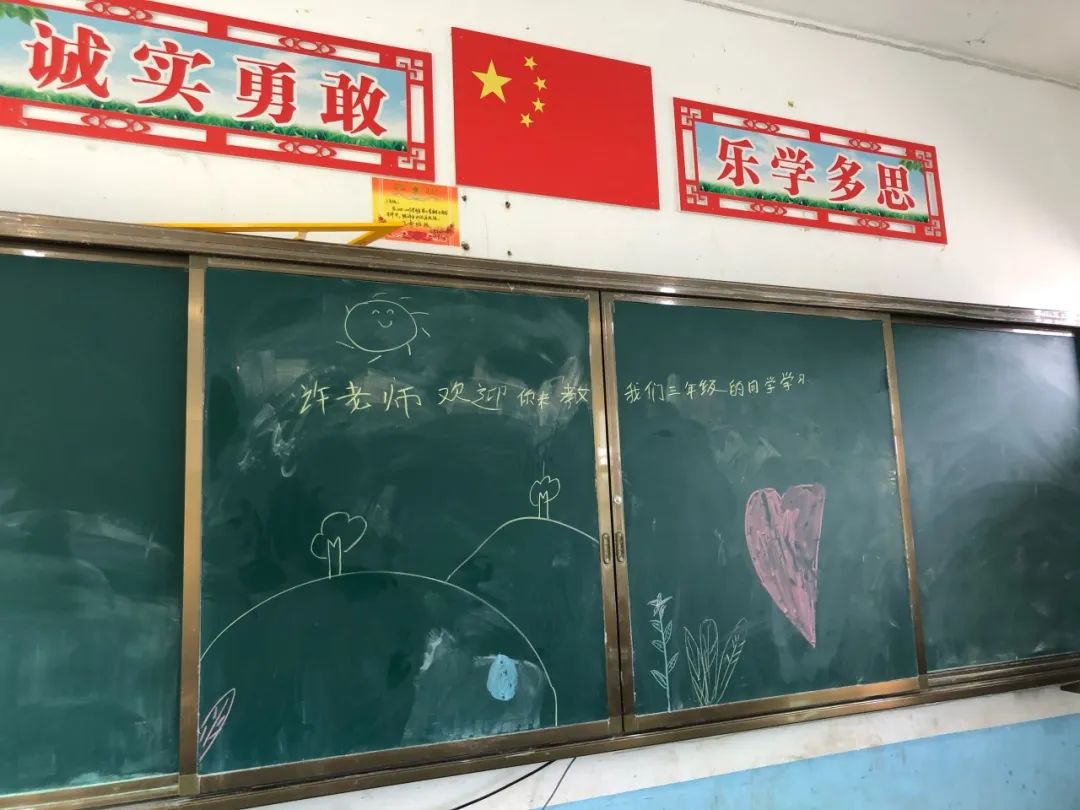 诚实勇敢
乐学多思
许老师欢迎你来教我们三年级的同学学习